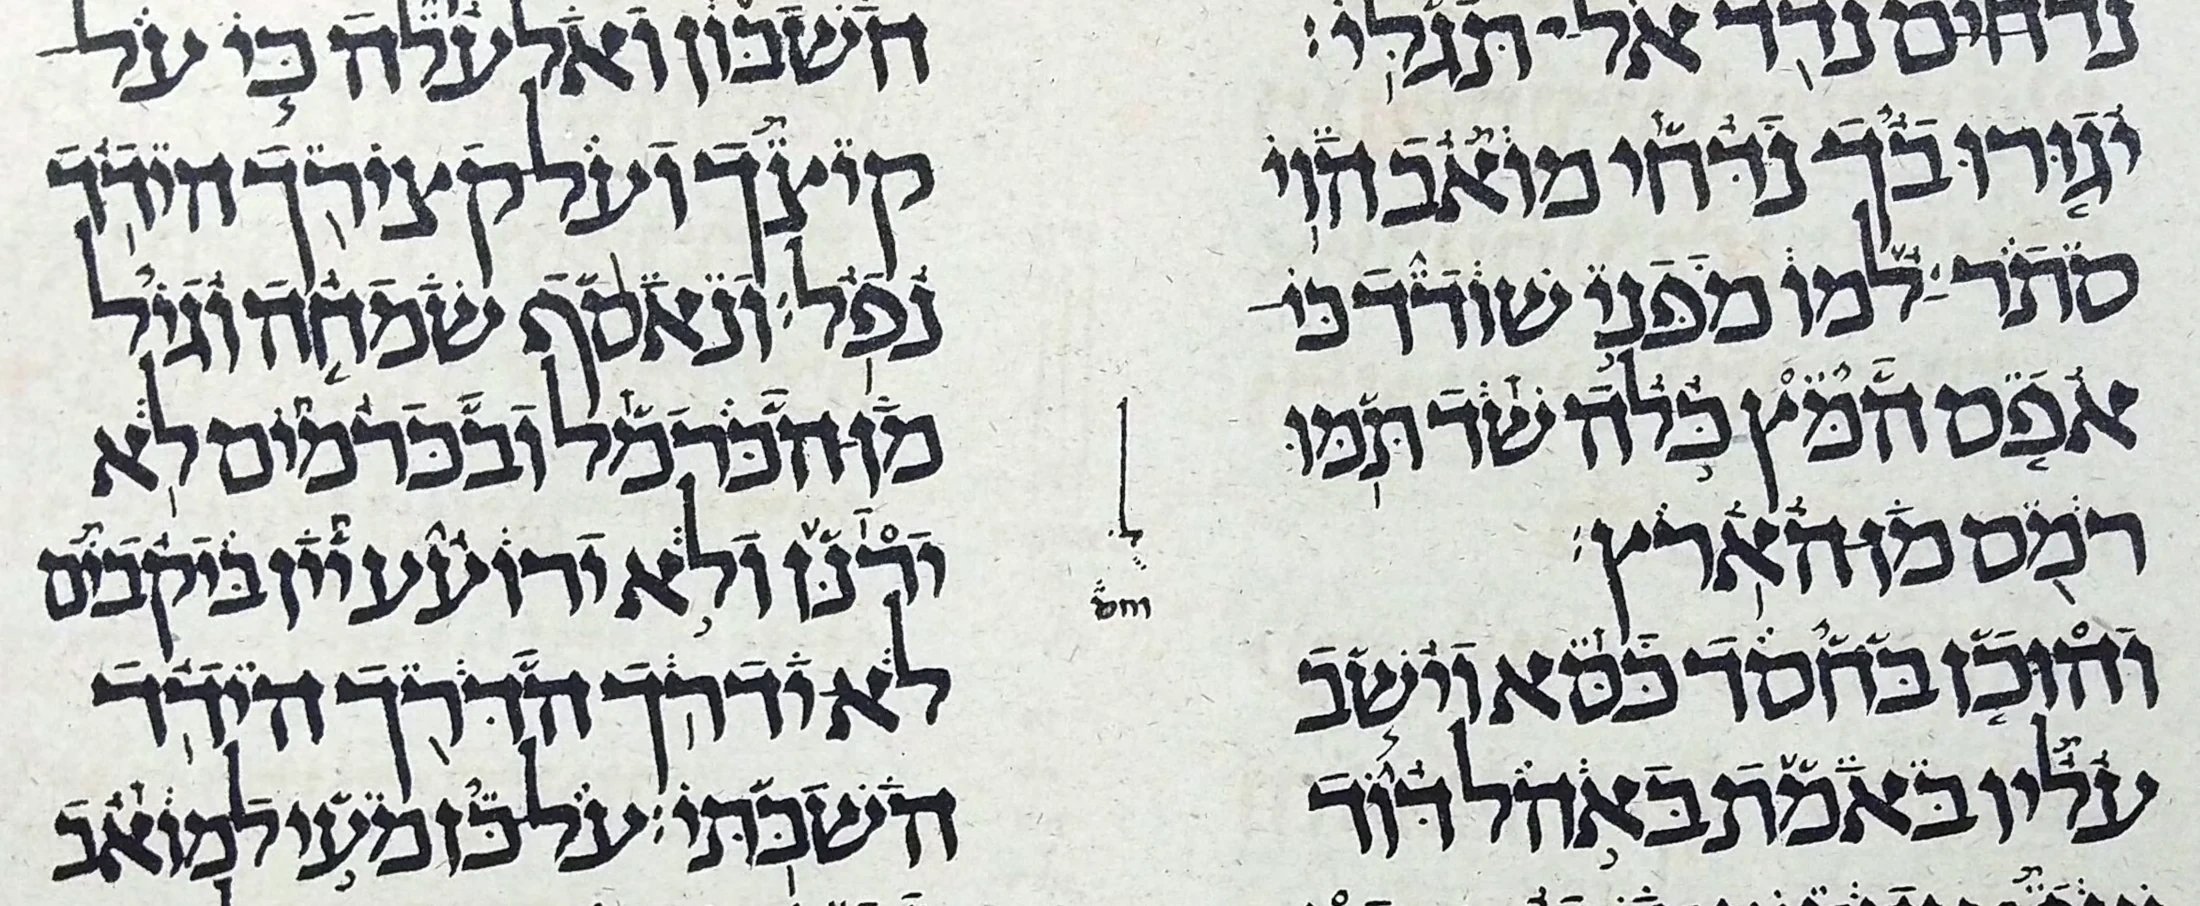 נדחים נדד אל־תגלי׃
יגורו בך נדחי מואב הוי
סתר למו מפני שודד כי
אפס המץ כלה שד תמו
רמס מן הארץ׃
והוכן בחסד כסא וישב
עליו באמת באהל דוד
חשבון ואלעלה כי על
קיצך ועל קצירך הידד
נפל׃ ונאסף שמחה וגיל
מן הכרמל ובכרמים לא
ירנן ולא ירועע יין ביקבים
לא ידרך הדרך הידד
השבתי׃ על כן מעי למואב